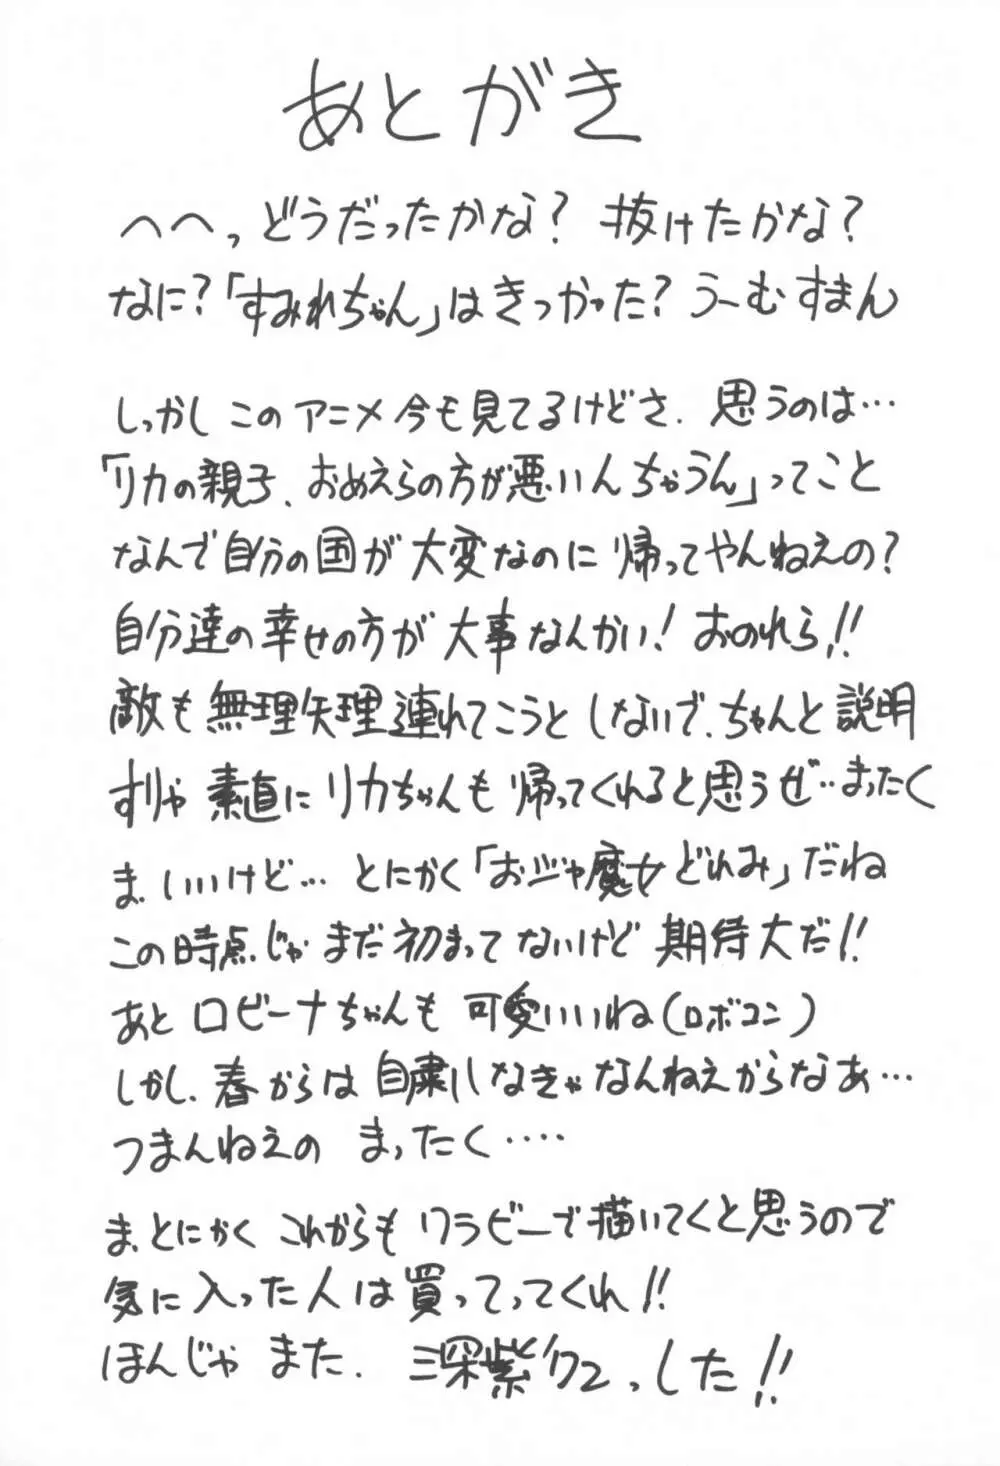 あとがき
へへっどうだったかな？抜けたかな？
なに？「すみれちゃん」はきつかった？うーむすまん
しっかしこのアニメ今も見てるけどさ、思うのは…
「リカの親子、おめえらの方が悪いんちゃうん」ってこと
なんで自分の国が大変なのに帰ってやんねえの？
自分達の幸せの方が大事なんかい！おのれら!!
敵も無理矢理連れてこうとしないで、ちゃんと説明
すりゃ素直にリカちゃんも帰ってくれると思うぜ…まったく
ま、いいけど…とにかく「おジャ魔女どれみ」だね
この時点じゃまだ初まってないけど期待大だ!!
あとロビーナちゃんも可愛いいね（ロボコン）
しかし、春からは自粛しなきゃなんねえからなあ…
つまんねえの まったく‥‥
ま、とにかくこれからもワラビーで描いてくと思うので
気に入った人は買ってってくれ!!
ほんじゃまた、深紫 でした!!